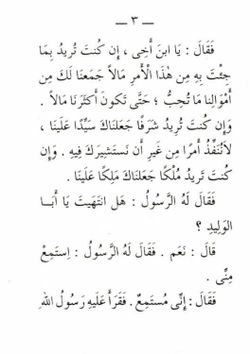 — ٣ —
فَقَالَ : يَا ابنَ أَخِى ، إِن كُنتَ تُرِيدُ بِمَا
جِئْتَ بِهِ مِن هٰذَا الْأَمرِ مَالًا جَمَعنَا لَكَ مِن
أَموَالِنَا مَا تُحِبُّ ؛ حَتَّى تَكُونَ أَكثَرَنَا مَالًا .
وَإِن كُنتَ تُرِيدُ شَرَفًا جَعَلنَاكَ سَيِّدًا عَلَينَا ،
لَانُنَفِّذُ أَمرًا مِن غَيرِ أَن نَستَشِيرَكَ فِيهِ . وَإِن
كُنتَ تُرِيدُ مُلْكًا جَعَلنَاكَ مَلِكًا عَلَينَا .
فَقَالَ لَهُ الرَّسُولُ : هَل انتَهَيتَ يَا أَبَا
الوَلِيدِ ؟
قَالَ : نَعَم . فَقَالَ لَهُ الرَّسُولُ : اِستَمِعْ
مِنِّى .
فَقَالَ : إِنِّى مُستَمِعٌ . فَقَرَأَ عَلَيهِ رَسُولُ اللهِ